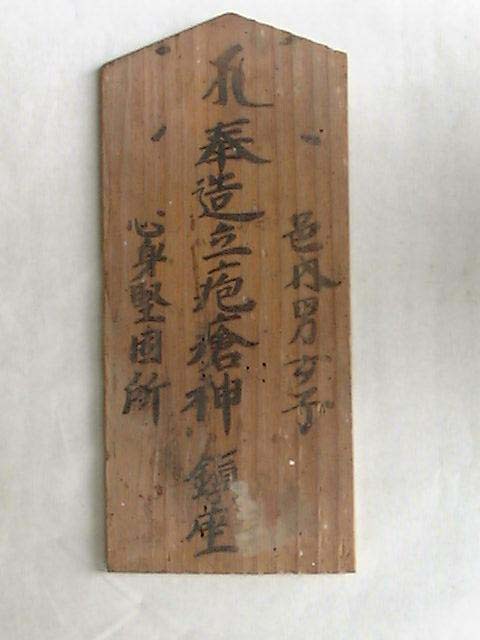 邑内男女子
奉造立疱瘡神 鎮座
心身堅固所